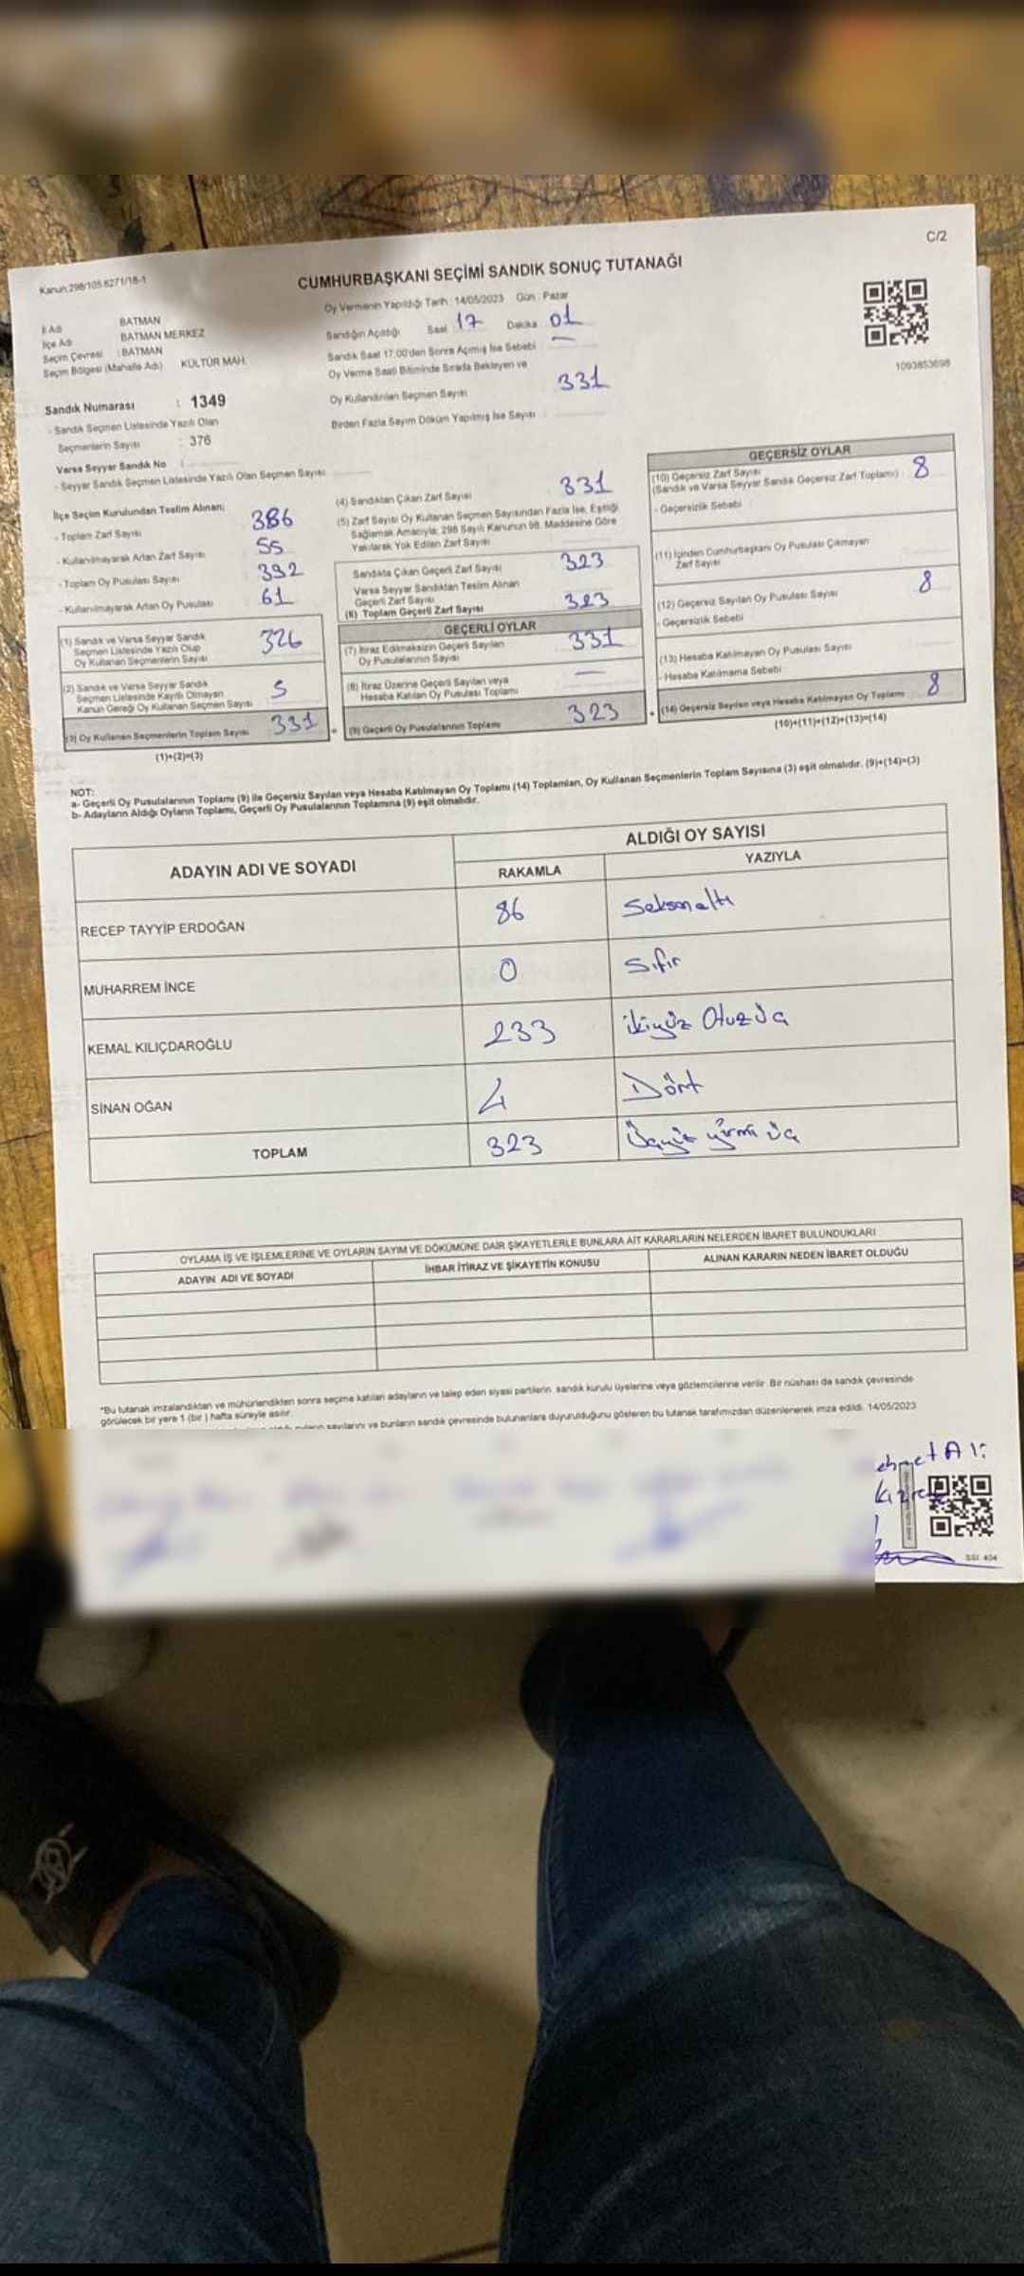 C/2
Kanun:298/105 6271/18-1
CUMHURBAŞKANI SEÇİMİ SANDIK SONUÇ TUTANAĞI
Oy Vermenin Yapıldığı Tarih : 14/05/2023 Gün : Pazar
İl Adı BATMAN
İlçe Adı BATMAN MERKEZ
Seçim Çevresi : BATMAN
Seçim Bölgesi (Mahalle Adı) KÜLTÜR MAH.
Sandığın Açıldığı Saat 17 Dakika 01
Sandık Saat 17.00'den Sonra Açılmış İse Sebebi —
Oy Verme Saati Bitiminde Sırada Bekleyen ve
Oy Kullandırılan Seçmen Sayısı 331
Birden Fazla Sayım Döküm Yapılmış İse Sayısı
1093853698
Sandık Numarası : 1349
- Sandık Seçmen Listesinde Yazılı Olan
Seçmenlerin Sayısı : 376
Varsa Seyyar Sandık No
- Seyyar Sandık Seçmen Listesinde Yazılı Olan Seçmen Sayısı
İlçe Seçim Kurulundan Teslim Alınan;
- Toplam Zarf Sayısı 386
- Kullanılmayarak Artan Zarf Sayısı 55
- Toplam Oy Pusulası Sayısı 392
- Kullanılmayarak Artan Oy Pusulası 61
(1) Sandık ve Varsa Seyyar Sandık
Seçmen Listesinde Yazılı Olup
Oy Kullanan Seçmenlerin Sayısı 326
(2) Sandık ve Varsa Seyyar Sandık
Seçmen Listesinde Kayıtlı Olmayan
Kanun Gereği Oy Kullanan Seçmen Sayısı 5
(3) Oy Kullanan Seçmenlerin Toplam Sayısı 331
(1)+(2)=(3)
(4) Sandıktan Çıkan Zarf Sayısı 331
(5) Zarf Sayısı Oy Kullanan Seçmen Sayısından Fazla İse, Eşitliği
Sağlamak Amacıyla; 298 Sayılı Kanunun 98. Maddesine Göre
Yakılarak Yok Edilen Zarf Sayısı
Sandıkta Çıkan Geçerli Zarf Sayısı 323
Varsa Seyyar Sandıktan Teslim Alınan
Geçerli Zarf Sayısı
(6) Toplam Geçerli Zarf Sayısı 323
GEÇERLİ OYLAR
(7) İtiraz Edilmeksizin Geçerli Sayılan
Oy Pusulalarının Sayısı 331
(8) İtiraz Üzerine Geçerli Sayılan veya
Hesaba Katılan Oy Pusulası Toplamı —
(9) Geçerli Oy Pusulalarının Toplamı 323
GEÇERSİZ OYLAR
(10) Geçersiz Zarf Sayısı
(Sandık ve Varsa Seyyar Sandık Geçersiz Zarf Toplamı) 8
- Geçersizlik Sebebi
(11) İçinden Cumhurbaşkanı Oy Pusulası Çıkmayan
Zarf Sayısı
(12) Geçersiz Sayılan Oy Pusulası Sayısı 8
- Geçersizlik Sebebi
(13) Hesaba Katılmayan Oy Pusulası Sayısı
- Hesaba Katılmama Sebebi
(14) Geçersiz Sayılan veya Hesaba Katılmayan Oy Toplamı 8
(10)+(11)+(12)+(13)=(14)
NOT:
a- Geçerli Oy Pusulalarının Toplamı (9) ile Geçersiz Sayılan veya Hesaba Katılmayan Oy Toplamı (14) Toplamları, Oy Kullanan Seçmenlerin Toplam Sayısına (3) eşit olmalıdır. (9)+(14)=(3)
b- Adayların Aldığı Oyların Toplamı, Geçerli Oy Pusulalarının Toplamına (9) eşit olmalıdır.
ADAYIN ADI VE SOYADI ALDIĞI OY SAYISI
RAKAMLA YAZIYLA
RECEP TAYYİP ERDOĞAN 86 Seksenaltı
MUHARREM İNCE 0 Sıfır
KEMAL KILIÇDAROĞLU 233 ikiyüz Otuz üç
SİNAN OĞAN 4 Dört
TOPLAM 323 Üçyüz yirmi üç
OYLAMA İŞ VE İŞLEMLERİNE VE OYLARIN SAYIM VE DÖKÜMÜNE DAİR ŞİKAYETLERLE BUNLARA AİT KARARLARIN NELERDEN İBARET BULUNDUKLARI
ADAYIN ADI VE SOYADI İHBAR İTİRAZ VE ŞİKAYETİN KONUSU ALINAN KARARIN NEDEN İBARET OLDUĞU
"Bu tutanak imzalandıktan ve mühürlendikten sonra seçime katılan adayların ve talep eden siyasi partilerin sandık kurulu üyelerine veya gözlemcilerine verilir. Bir nüshası da sandık çevresinde
görülecek bir yere 1 (bir) hafta süreyle asılır.
sayılarını ve bunların sandık çevresinde bulunanlara duyurulduğunu gösteren bu tutanak tarafımızdan düzenlenerek imza edildi. 14/05/2023
ehmet Ali